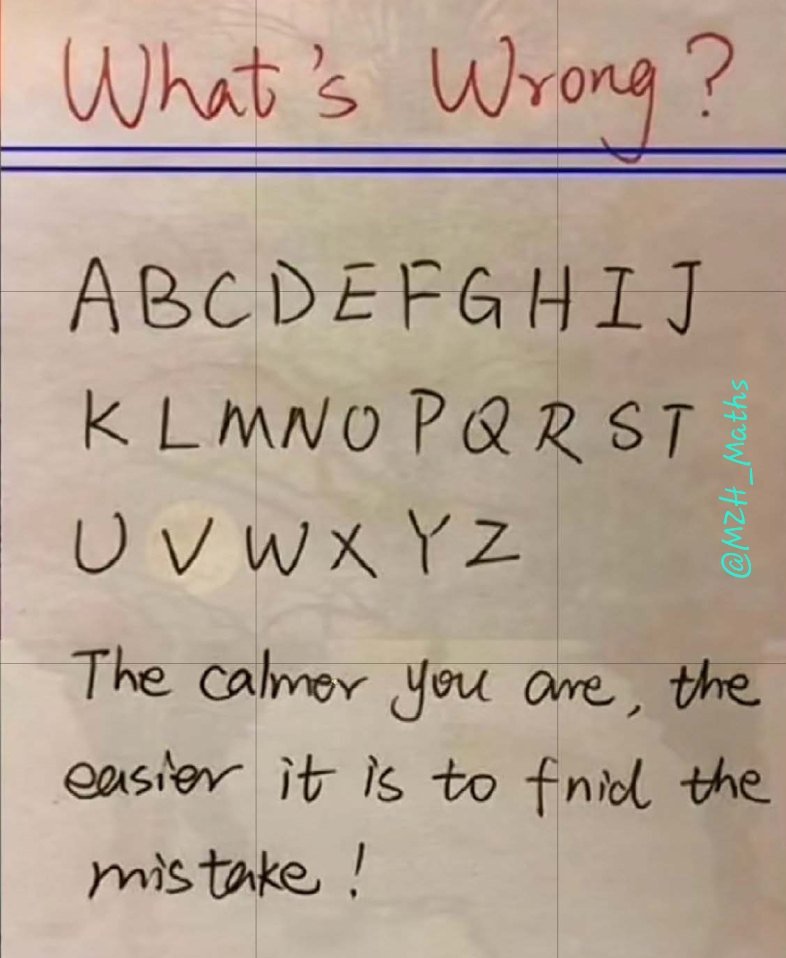 What's Wrong?
A B C D E F G H I J
K L M N O P Q R S T
U V W X Y Z
@MZH_Maths
The calmer you are, the
easier it is to fnid the
mistake!